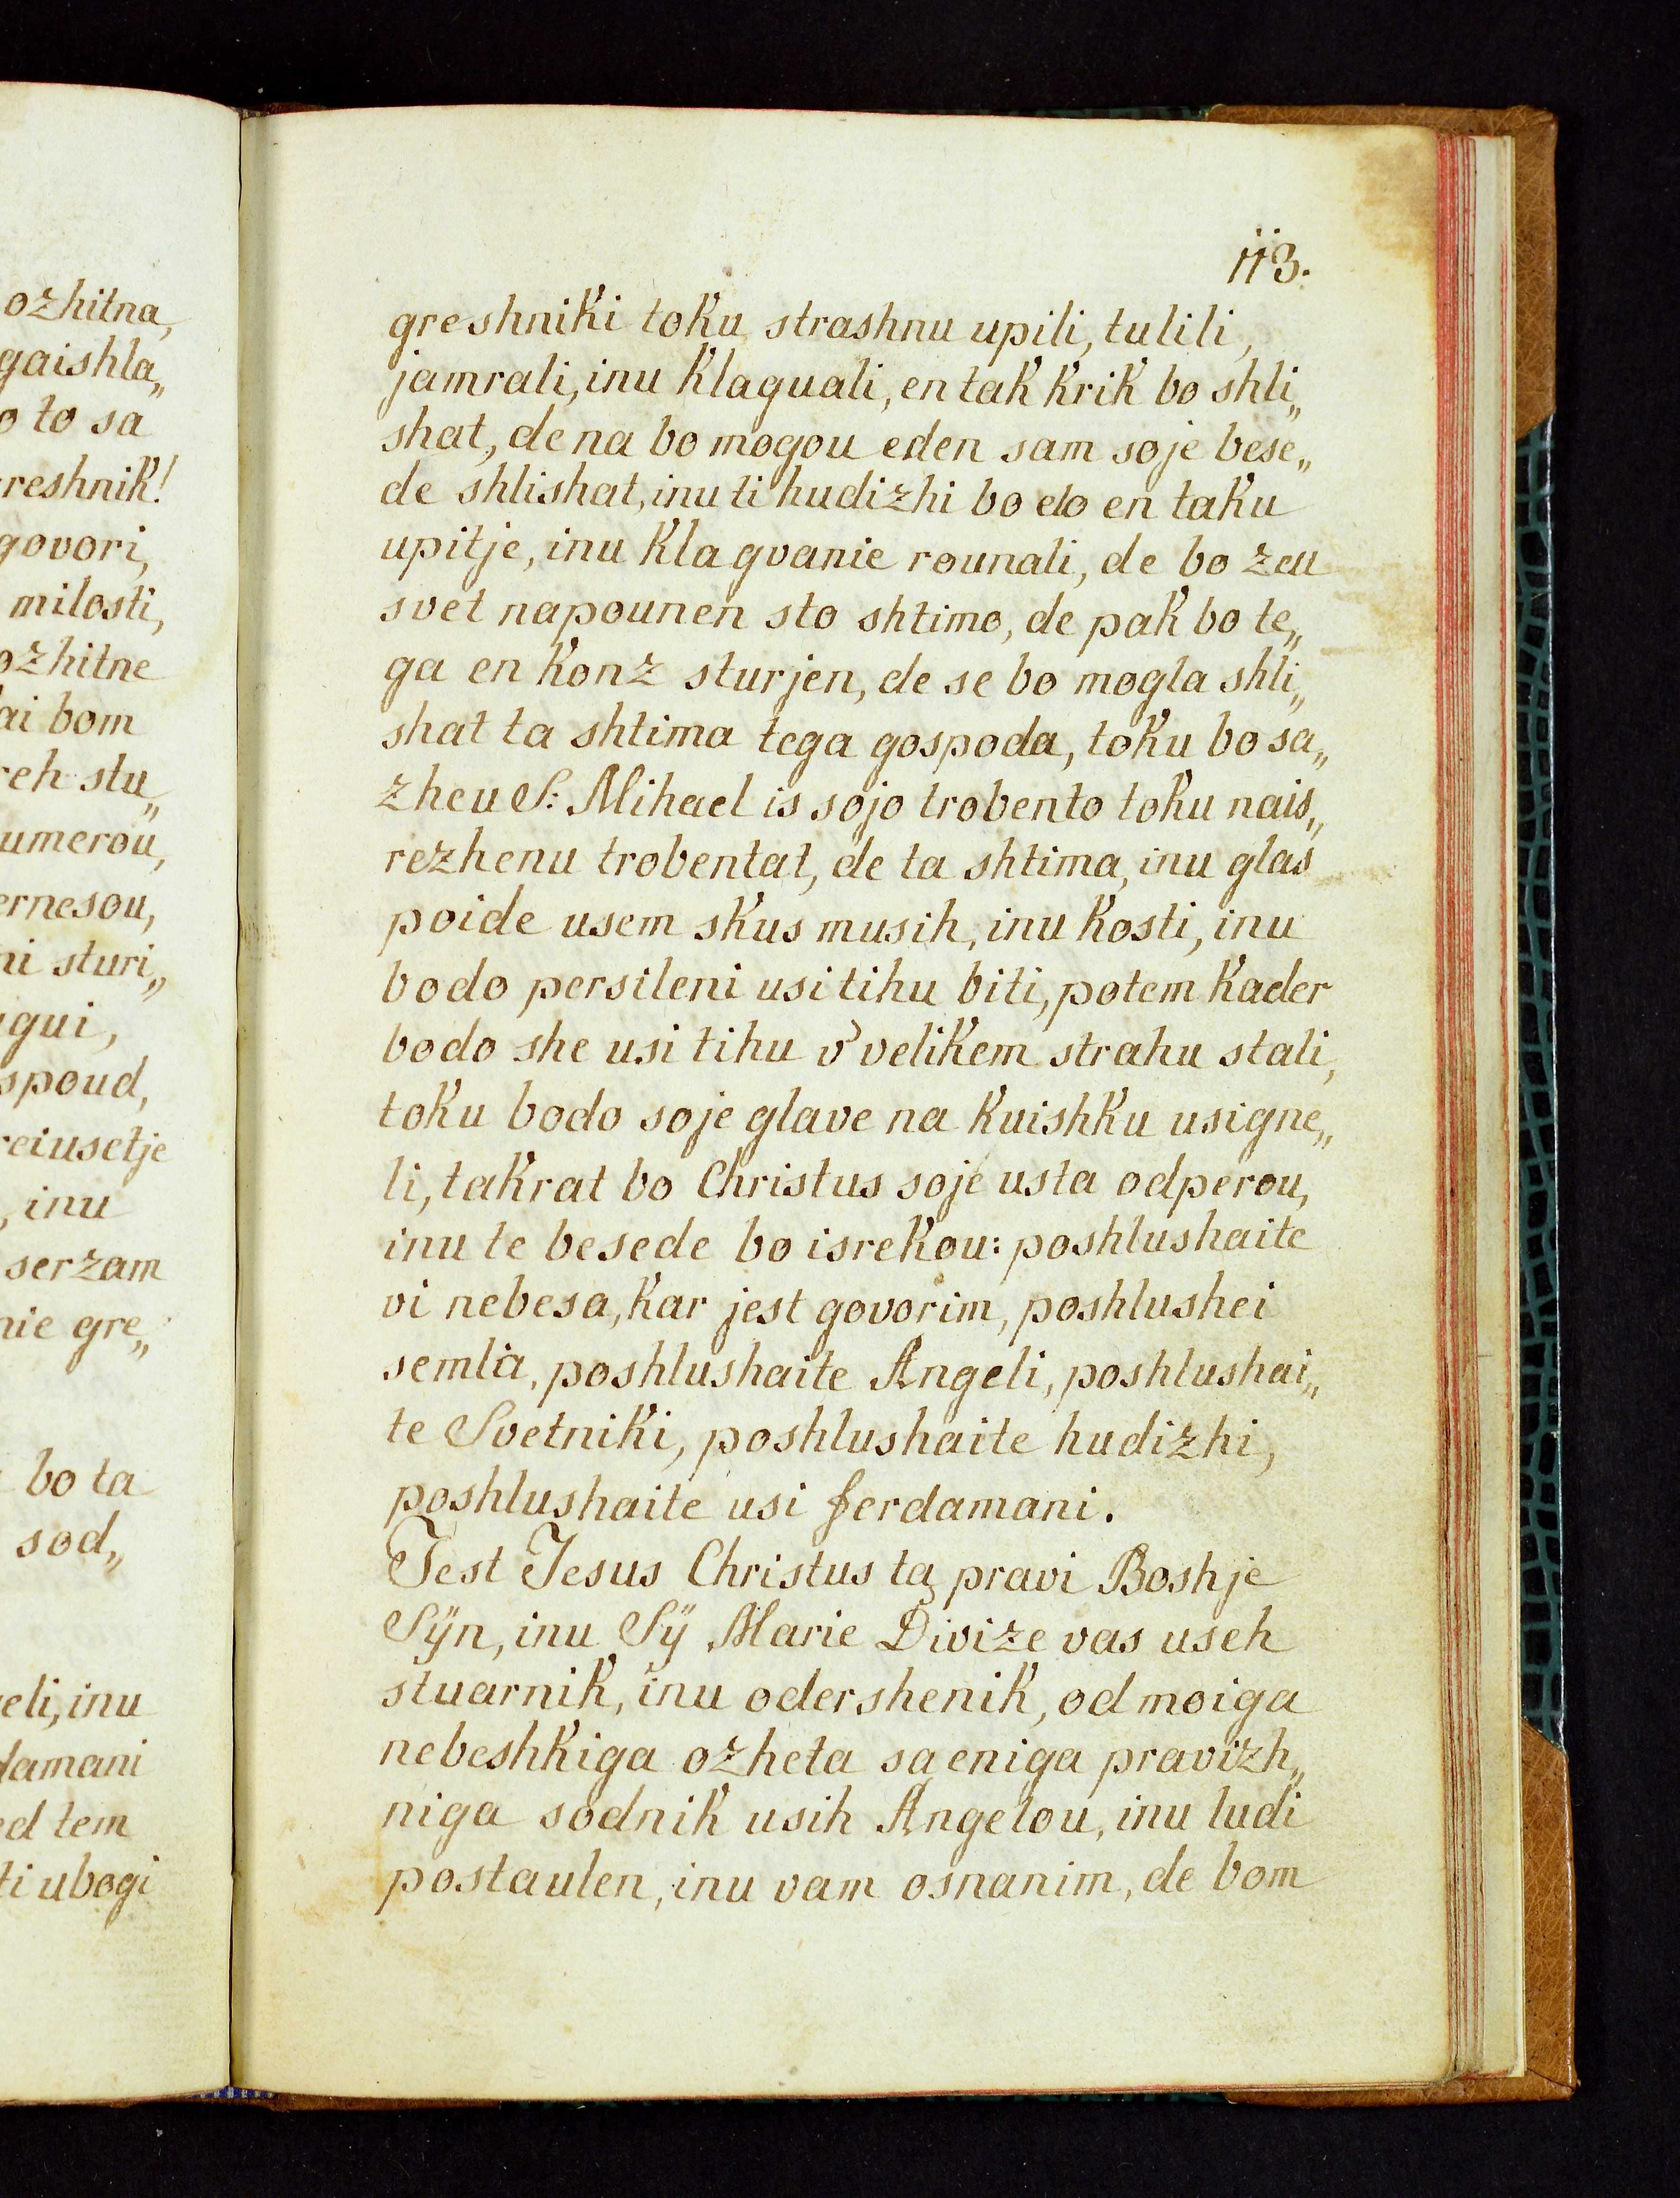 ozhitna,
gaishla„
o to sa
reshnik!
govori,
milosti,
ozhitne
ai bom
reh stu„
umerou,
ernesou,
ni sturi„
gui,
spoud,
reiusetje
, inu
serzam
nie gre„
bo ta
sod„
eli, inu
damani
ed tem
ti ubogi
113.
greshniki toku strashnu upili, tulili,
jamrali, inu klaguali, en tak krik bo shli„
shat, de na bo mogou eden sam soje bese„
de shlishat, inu ti hudizhi bo do en taku
upitje, inu klagvanie rounali, de bo zeu
svet napounen sto shtimo, de pak bo te„
ga en konz sturjen, de se bo mogla shli„
shat ta shtima tega gospoda, toku bo sa„
zheu S: Mihael is sojo trobento toku nais„
rezhenu trobentat, de ta shtima, inu glas
poide usem skus musih, inu kosti, inu
bodo persileni usi tihu biti, potem kader
bodo she usi tihu v' velikem strahu stali,
toku bodo soje glave na kuishku usigne„
li, takrat bo Christus soje usta odperou,
inu te besede bo isrekou: poshlushaite
vi nebesa, kar jest govorim, poshlushei
semla, poshlushaite Angeli, poshlushai„
te Svetniki, poshlushaite hudizhi,
poshlushaite usi ferdamani.
Jest Jesus Christus ta pravi Boshje
Sÿn, inu Sÿ Marie Divize vas useh
stuarnik, inu odershenik, od moiga
nebeshkiga ozheta sa eniga pravizh„
niga sodnik usih Angelou, inu ludi
postaulen, inu vam osnanim, de bom